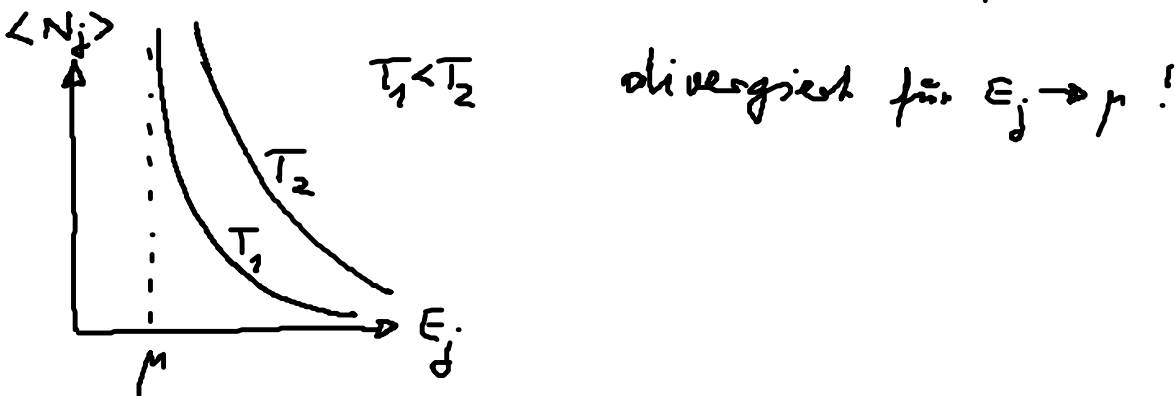 <N_j>
T_1 < T_2
divergiert für E_j → μ !
T_2
T_1
E_j
μ